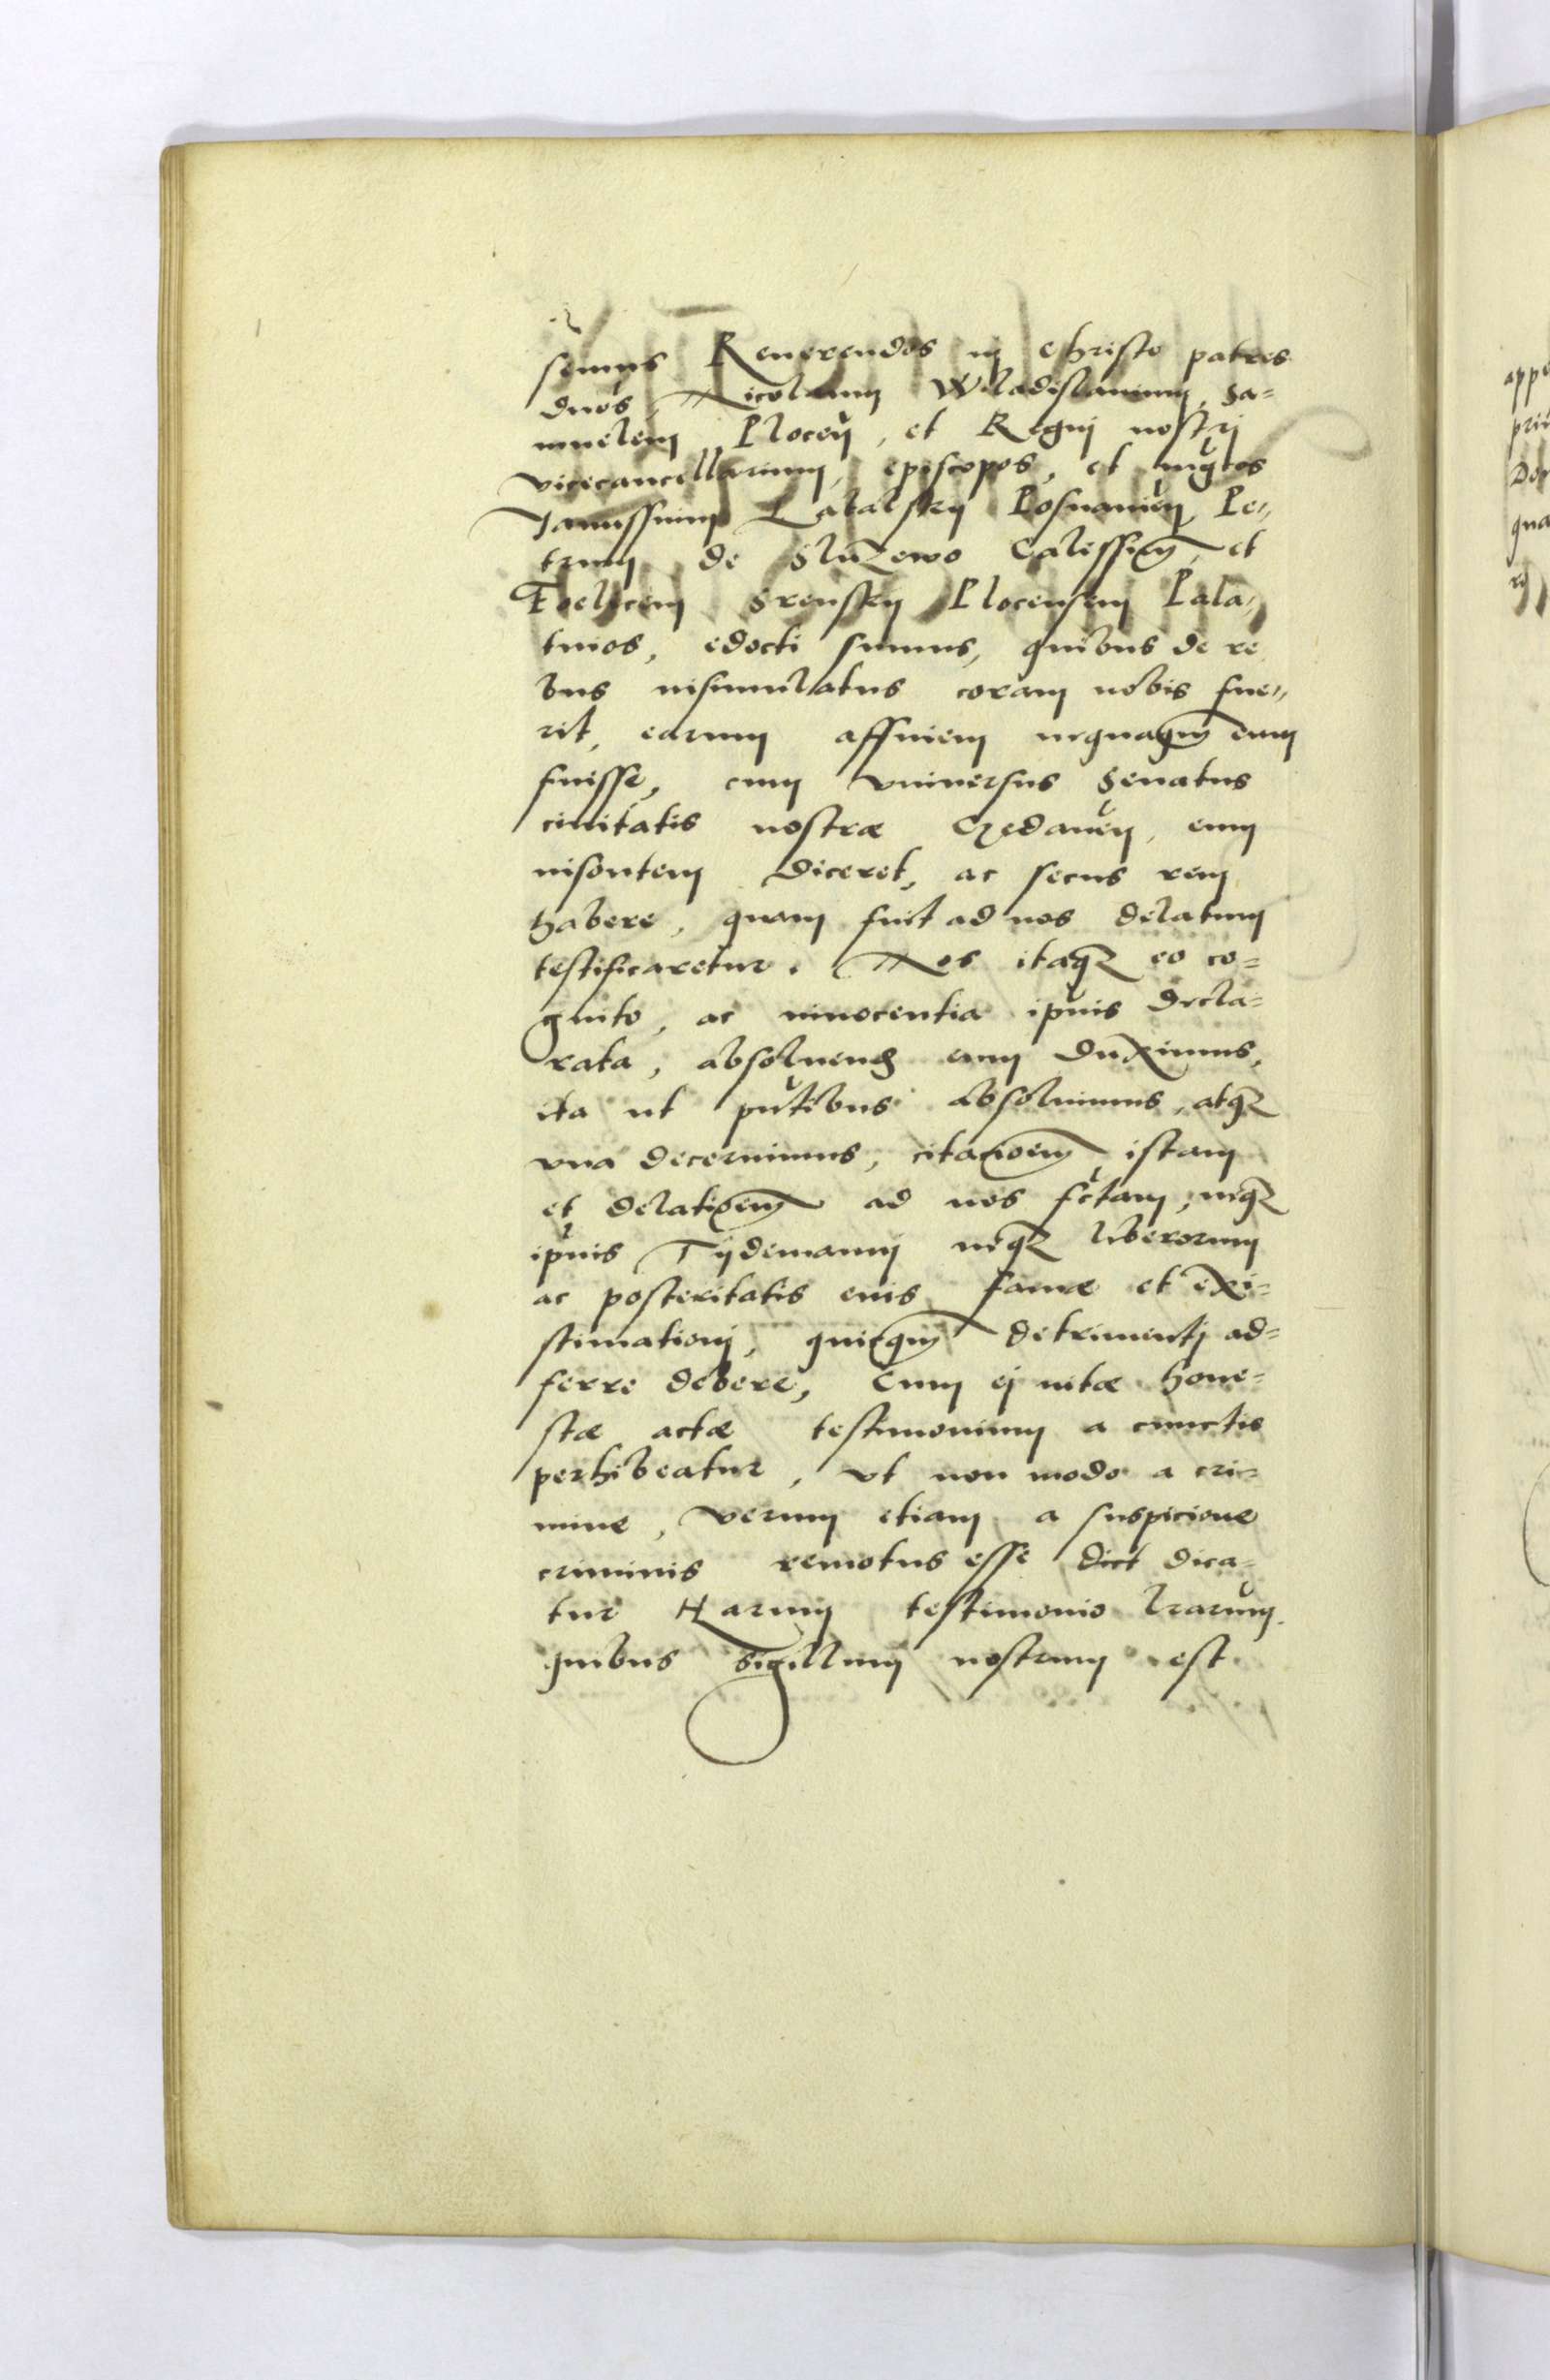 semus Reuerendos in Christo patres
dnos, Nicolaum Wladislauiem, Sa=
muelem Plocen, et Regni nostri
vicecancellarium, episcopos, et mgcos
Janussium Latalsky Posnanien, Pe=
trum de Sluzewo Calissien, et
Foelicem Srensky Plocensem Pala=
tinos, edocti sumus, quibus de re
bus insimulatus coram nobis fue=
rit, earum affinem nequaqm eum
fuisse, cum vniuersus Senatus
ciuitatis nostræ Gedanen, eum
insontem diceret, ac secus rem
habere, quam fuit ad nos delatum
testificaretur. Nos itaq eo co=
gnito, ac innocentia ipius decla=
rata, absoluend eum duximus,
ita ut pntibus absoluimus, atq
vna decernimus, citacioem istam
et delatioem ad nos fctam, neq
ipius Tydemanni neq liberorum
ac posteritatis eius famæ et exi=
stimationi, quicqm detrimenti ad=
ferre debere, Cum ei uitæ hone=
stæ actæ testimonium a cunctis
perhibeatur, vt non modo a cri=
mine, verum etiam a suspicione
criminis remotus esse dict dica=
tur Harum testimonio lrarum
quibus sigillum nostrum est